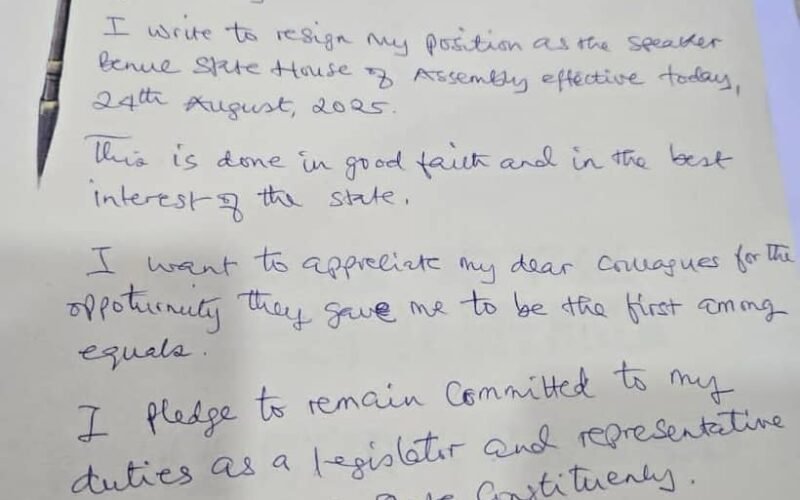 I write to resign my position as the speaker
Benue State House of Assembly effective today,
24th August, 2025.
This is done in good faith and in the best
interest of the state.
I want to appreciate my dear colleagues for the
oppoturnity they gave me to be the first among
equals.
I pledge to remain committed to my
duties as a legislator and representative
Constituency.